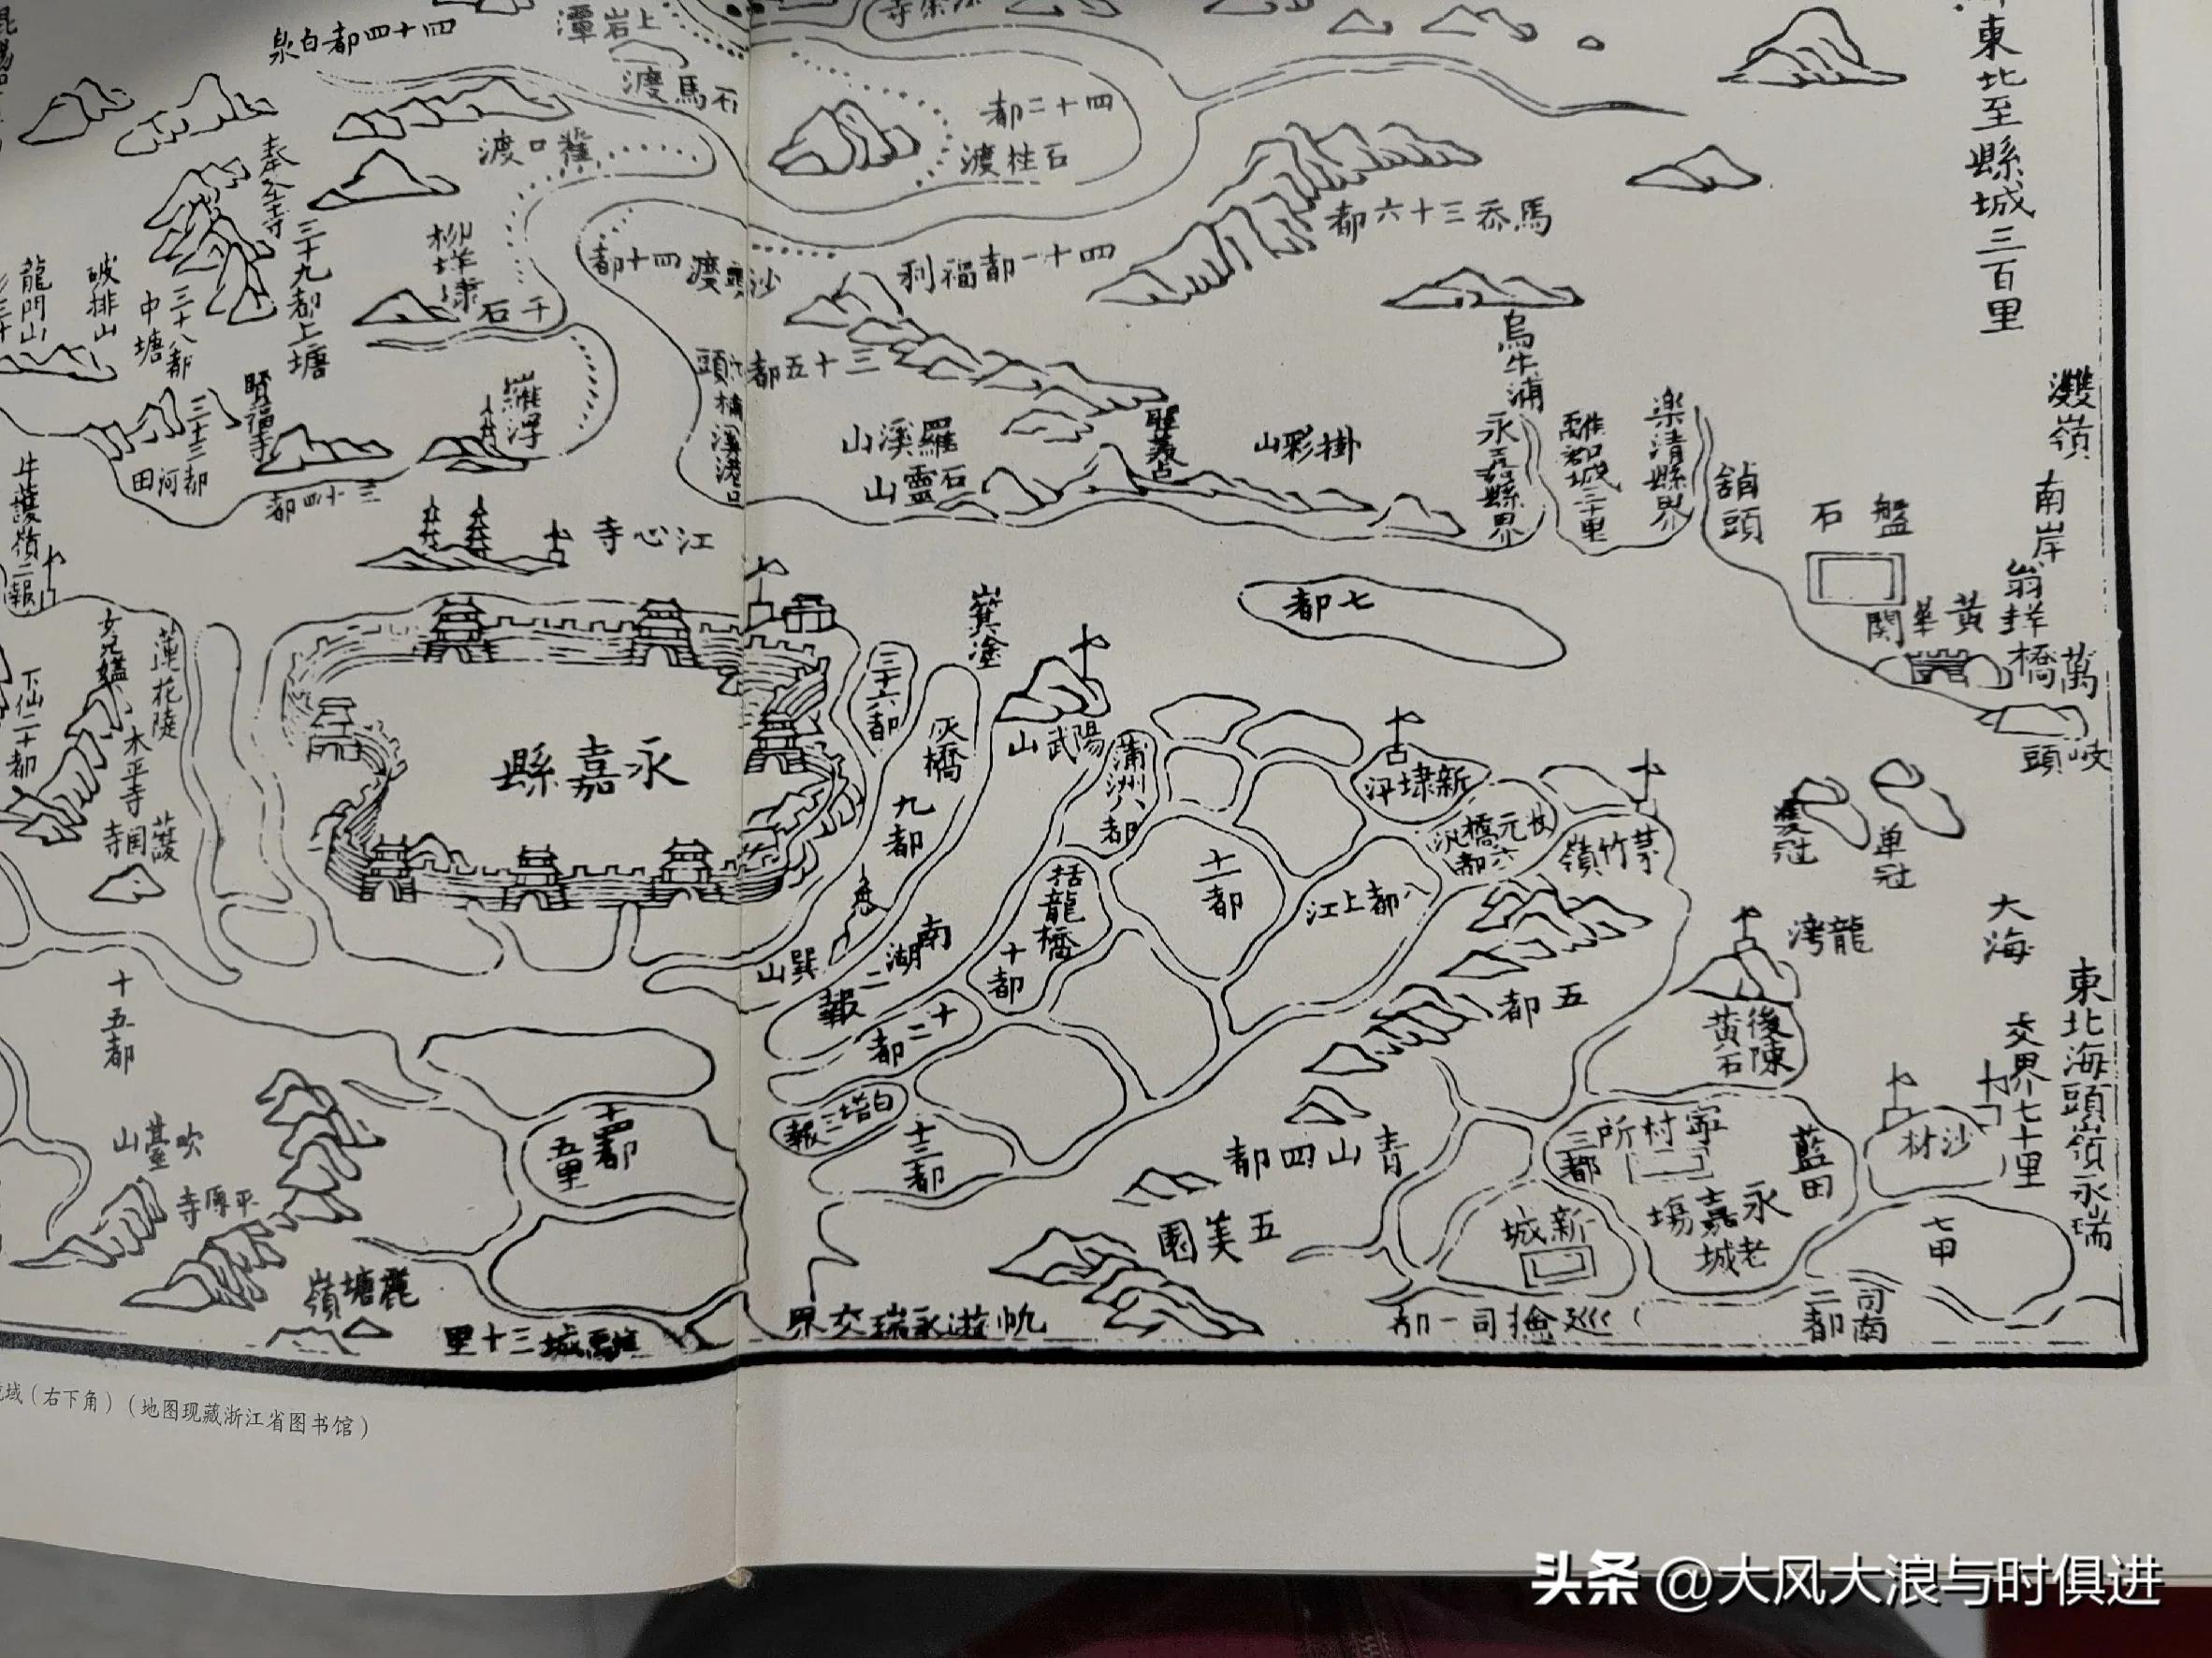 四十四都白泉
上岩潭
石馬渡
渡口
四十二都
石柱渡
東北至縣城三百里
奉聖寺
三十九都上塘
龍門山
破排山
三十八都
中塘
千石
四十都
沙頭渡
四十一都福利
馬岙三十六都
三十五都
楠溪港口
羅浮
賢福寺
三十三都
河田
三十四都
羅溪山
石靈山
掛彩山
烏牛浦
永嘉縣界
離郡城三十里
樂清縣界
館頭
盤石
南岸
翁垟橋
黃華關
萬
岐頭
江心寺
七都
牛護嶺二報
蓮花陡
下仙二十都
木平寺
護國寺
永嘉縣
三十六都
灰橋
九都
茅竹嶺
陽武山
蒲洲八都
新埭
十一都
八都上江
六都
五都
單冠
雙冠
龍灣
大海
後陳
黃石
東北海頭嶺永瑞
交界七十里
巽山
南湖二報
括龍橋
十都
十二都
白塔三報
十三都
十四都
五里
十五都
吹臺山
平原寺
麗塘嶺
離城三十里
帆遊永瑞交界
青山四都
五美園
寧村所
三都
藍田
沙村
永嘉場
老城
新城
七甲
巡檢司一都
司南
二都
域（右下角）（地图现藏浙江省图书馆）
头条 @大风大浪与时俱进